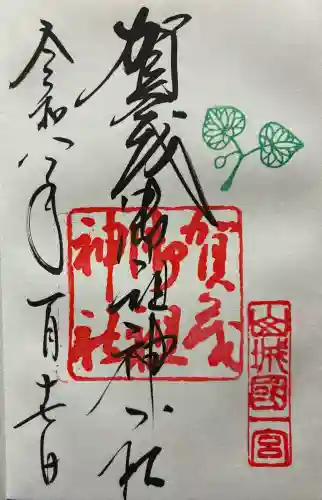 賀茂御祖神社
令和八年一月十七日
賀茂
御祖
神社
山城國一宮